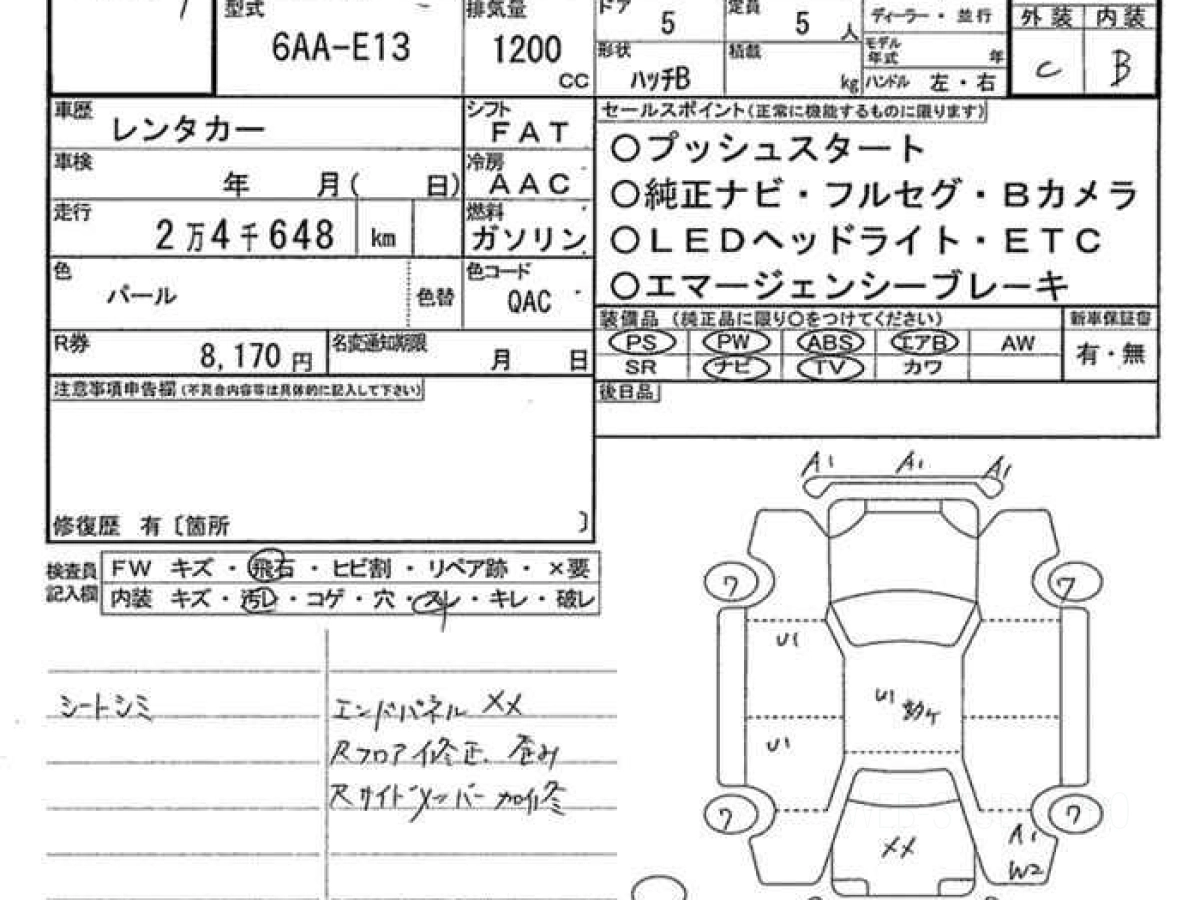 型式 排気量 ドア 定員 ディーラー・並行 外装 内装
6AA-E13 1200 CC 5 5 人 モデル年式 年
形状 ハッチB 積載 kg ハンドル 左・右 C B
車歴 レンタカー シフト FAT セールスポイント(正常に機能するものに限ります)
○プッシュスタート
車検 年 月( 日) 冷房 AAC
○純正ナビ・フルセグ・Bカメラ
走行 2万4千648 km 燃料 ガソリン
○LEDヘッドライト・ETC
色 パール 色替 色コード QAC
○エマージェンシーブレーキ
装備品 (純正品に限り○をつけてください) 新車保証書
PS PW ABS エアB AW 有・無
SR ナビ TV カワ
R券 8,170円 名変通知期限 月 日
注意事項申告欄(不具合内容等は具体的に記入して下さい)
後日品
修復歴 有〔箇所 〕
検査員記入欄 FW キズ・飛石・ヒビ割・リペア跡・×要
内装 キズ・汚レ・コゲ・穴・スレ・キレ・破レ
シートシミ
エンドパネル XX
Rフロア修正、歪み
Rサイドメンバー 加修
A1 A1 A1
ワ ワ
U1
U1
U1
ワ ワ
A1
W2
XX